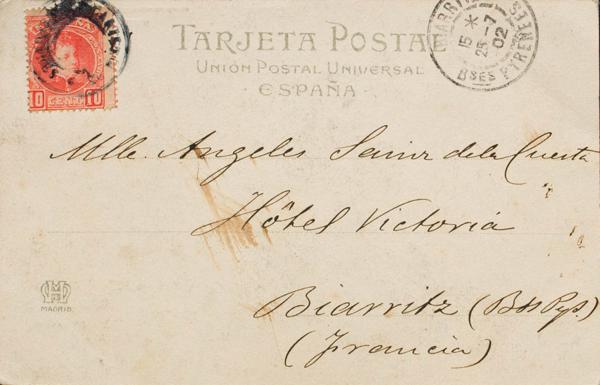 TARJETA POSTAL
UNIÓN POSTAL UNIVERSAL
ESPAÑA
10 CENT. 10
5 *
25 -7
02
BSES PYRENEES
Mlle. Angeles Sainz de la Cuesta
Hôtel Victoria
Biarritz (Bas Pys.)
(Francia)
MADRID